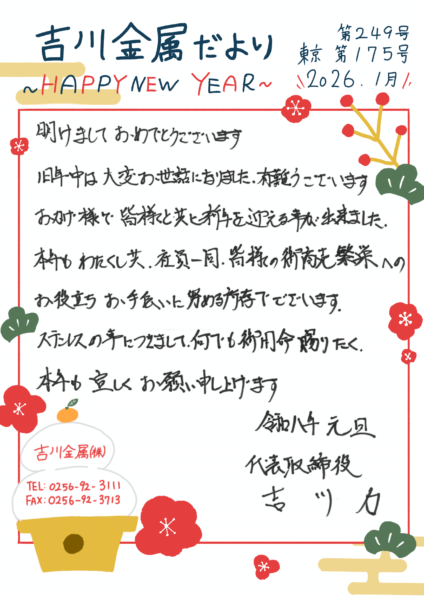 吉川金属だより
第249号
東京 第175号
~HAPPY NEW YEAR~
2026.1月
明けまして おめでとうございます
旧年中は 大変お世話になりました。有難うございます
おかげ様で 皆様と共に 新年を迎える事が出来ました。
本年も わたくし共、社員一同、皆様の御商売繁栄への
お役立ち お手伝いに努める所存でございます。
ステンレスの事につきまして、何でも御用命賜りたく、
本年も 宜しく お願い申し上げます
令和八年 元旦
代表取締役
吉川 力
吉川金属(株)
TEL: 0256-92-3111
FAX: 0256-92-3713